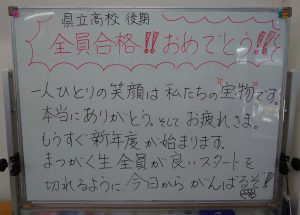 県立高校 後期
全員合格!! おめでとう!!
一人ひとりの笑顔は、私たちの"宝物"です。
本当にありがとう。そして お疲れさま。
もうすぐ新年度が始まります。
まつがく生 全員が良いスタートを
切れるように 今日から がんばるぞ!!